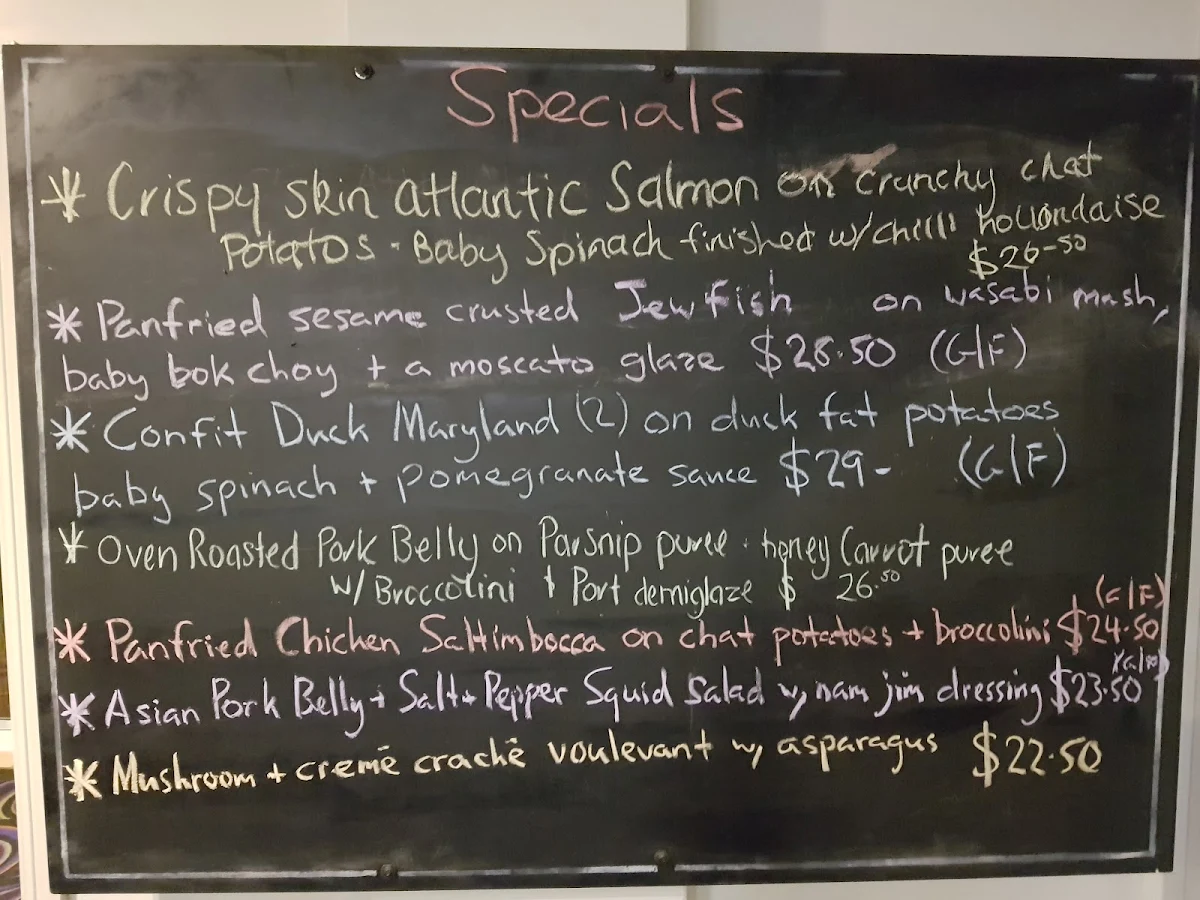 Specials
* Crispy skin atlantic Salmon on crunchy chat
Potatos - Baby Spinach finished w/ chilli hollondaise
$26-50
* Panfried sesame crusted Jewfish on wasabi mash,
baby bok choy + a moscato glaze $28.50 (G/F)
* Confit Duck Maryland (2) on duck fat potatoes
baby spinach + pomegranate sauce $29- (G/F)
* Oven Roasted Pork Belly on Parsnip puree - honey Carrot puree
w/ Broccolini + Port demiglaze $ 26.50
(G/F)
* Panfried Chicken Saltimbocca on chat potatoes + broccolini $24.50
(G/F)
* Asian Pork Belly + Salt + Pepper Squid Salad w/ nam jim dressing $23.50
* Mushroom + cremē crachē voulevant w/ asparagus $22.50